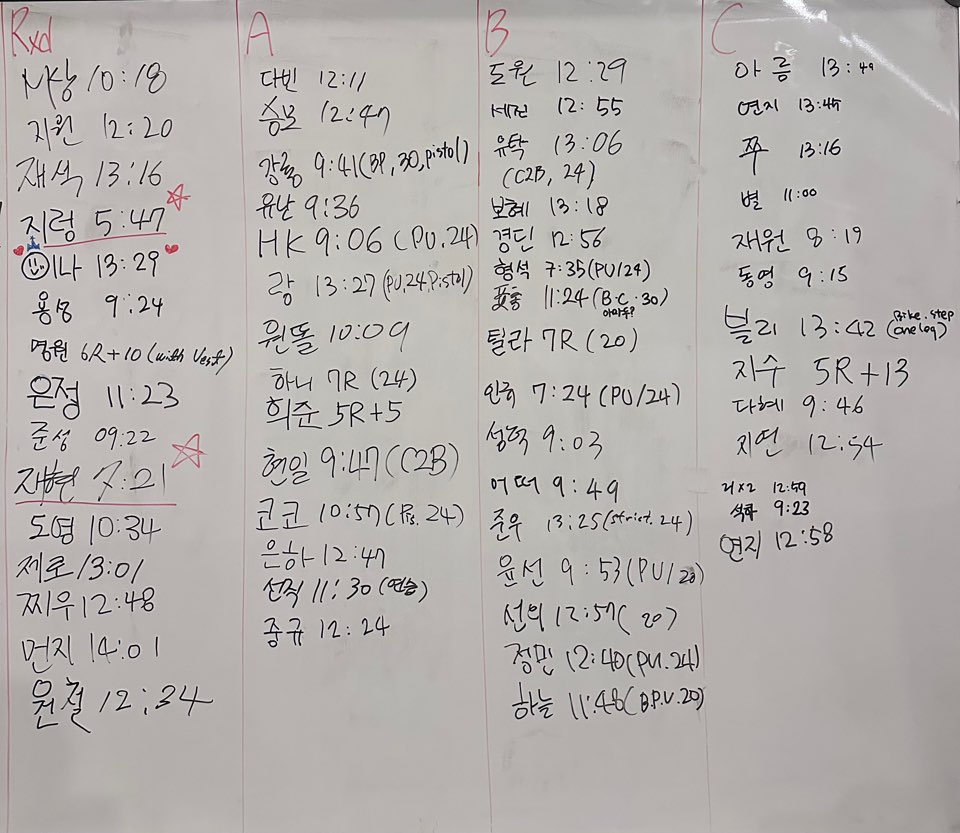 Rxd
M상 10:18
지원 12:20
재석 13:16
지렁 5:47
이나 13:29
용성 9:24
명원 6R+10 (with Vest)
은정 11:23
준성 09:22
재현 7:21
도영 10:34
제로 13:01
찌우 12:48
먼지 14:01
원철 12:34
A
다빈 12:11
승보 12:47
강륭 9:41 (BP, 30, pistol)
유난 9:36
HK 9:06 (PU. 24)
랑 13:27 (PU, 24, Pistol)
원돌 10:09
하니 7R (24)
희준 5R+5
현일 9:47 (C2B)
코코 10:57 (Pis. 24)
은하 12:47
선직 11:30 (연습)
중규 12:24
B
도원 12:29
세진 12:55
유탁 13:06
(C2B, 24)
보혜 13:18
경딘 12:56
형석 7:35 (PU/24)
11:24 (B.C.30)
탈라 7R (20)
7:24 (PU/24)
성혁 9:03
어떠 9:49
준우 13:25 (strict. 24)
윤선 9:53 (PU/20)
선의 12:57 (20)
정민 12:40 (PU. 24)
하늘 11:48 (B.P.U. 20)
C
아름 13:49
연지 13:45
쭈 13:16
별 11:00
재원 8:19
동영 9:15
블리 13:42 (Bike. step
one leg)
지수 5R+13
다혜 9:46
지연 12:54
리x2 12:59
석화 9:23
연지 12:58